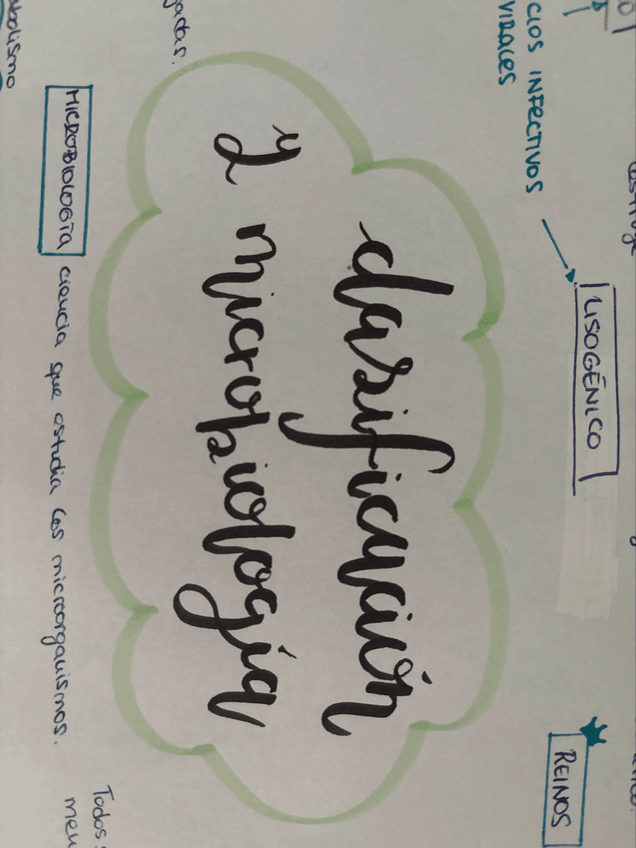 CLOS INFECTIVOS
VIRALES
LISOGÉNICO
REINOS
clasificación
y microbiología
gadas.
MICROBIOLOGÍA ciencia que estudia los microorganismos.
Todos
abolismo